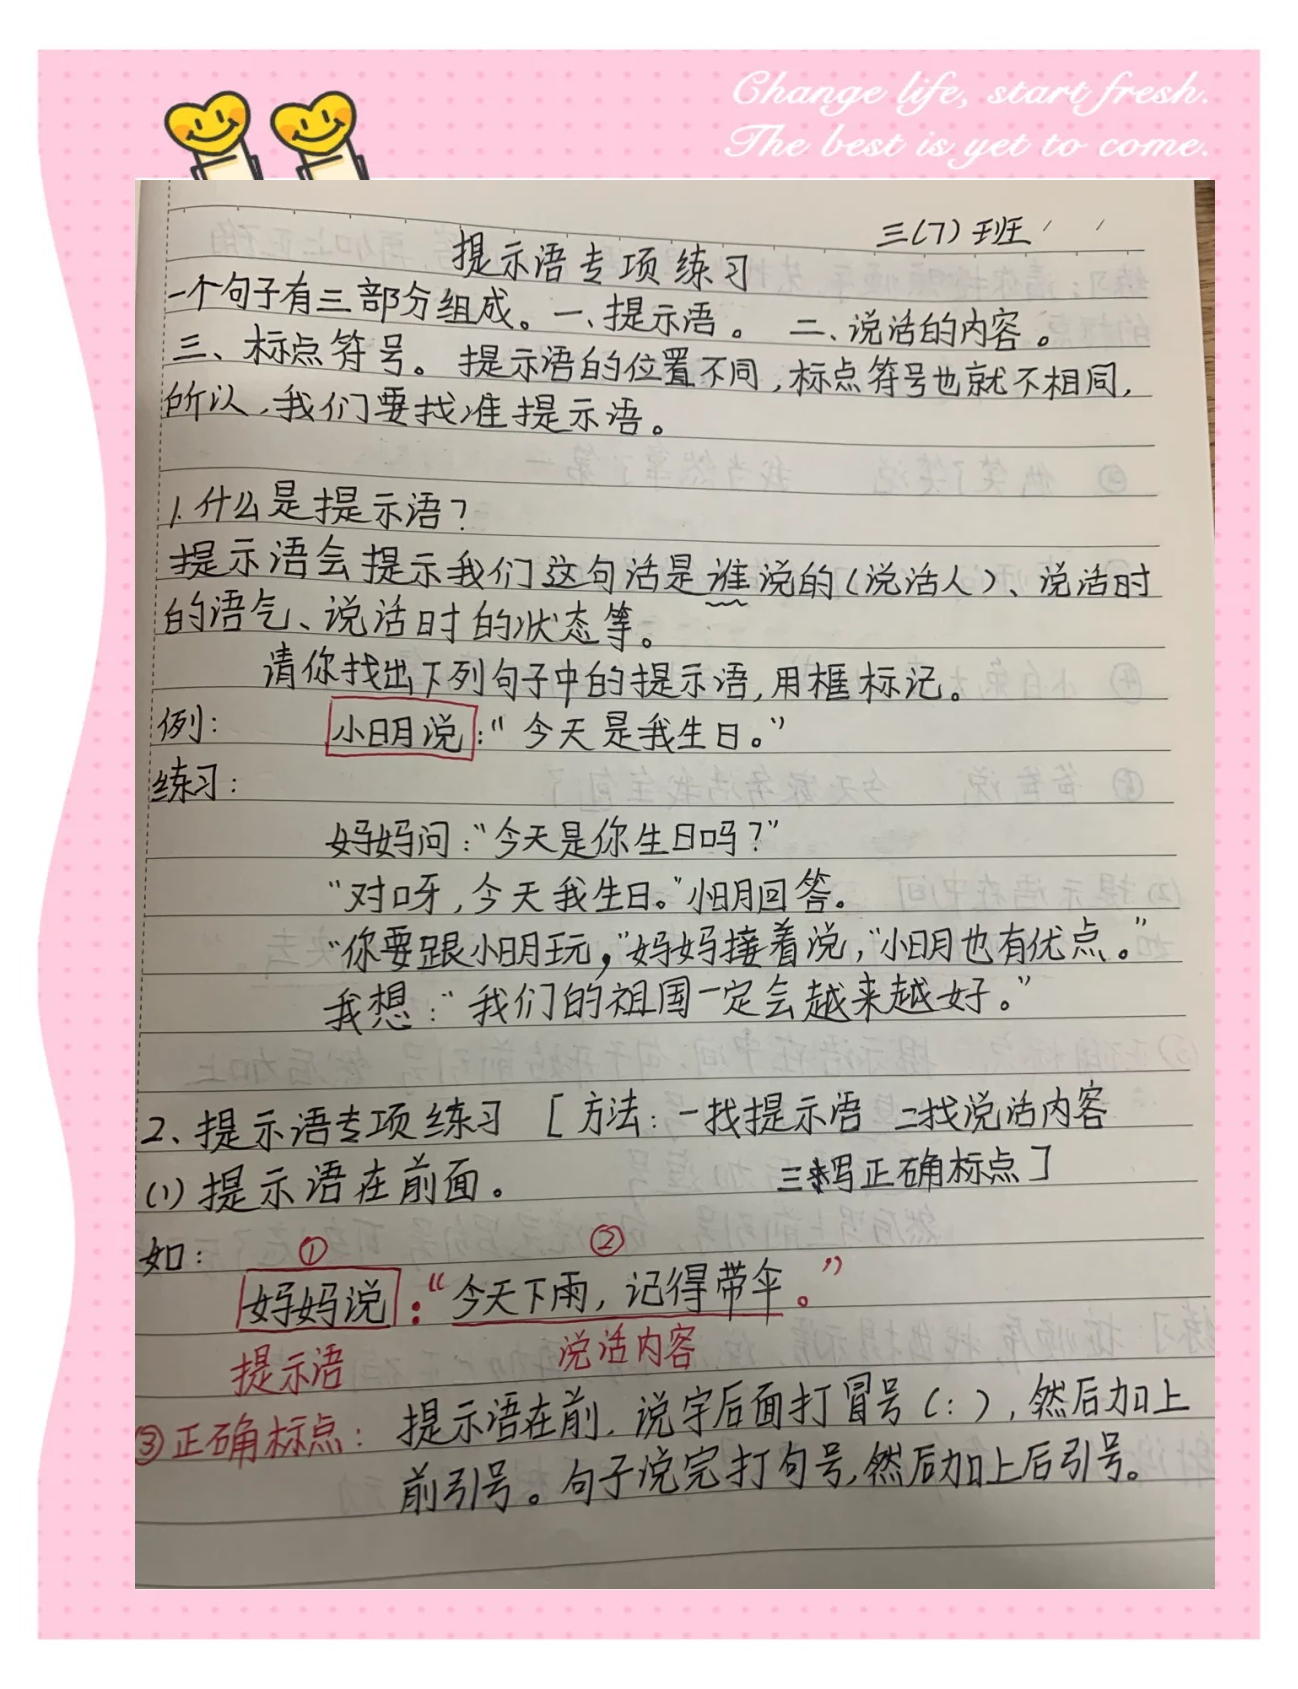 Change life, start fresh.
The best is yet to come.
三(7)班
提示语专项练习
一个句子有三部分组成。一、提示语。 二、说话的内容。
三、标点符号。提示语的位置不同,标点符号也就不相同,
所以,我们要找准提示语。
1.什么是提示语?
提示语会提示我们这句话是谁说的(说话人)、说话时
的语气、说话时的状态等。
请你找出下列句子中的提示语,用框标记。
例: 小明说:“今天是我生日。”
练习:
妈妈问:“今天是你生日吗?”
“对呀,今天我生日。”小明回答。
“你要跟小明玩,”妈妈接着说,“小明也有优点。”
我想:“我们的祖国一定会越来越好。”
2、提示语专项练习 [方法:一找提示语 二找说话内容
三写正确标点]
(1)提示语在前面。
如: ① ②
妈妈说:“今天下雨,记得带伞。”
提示语 说话内容
③正确标点: 提示语在前,说字后面打冒号(:),然后加上
前引号。句子说完打句号,然后加上后引号。